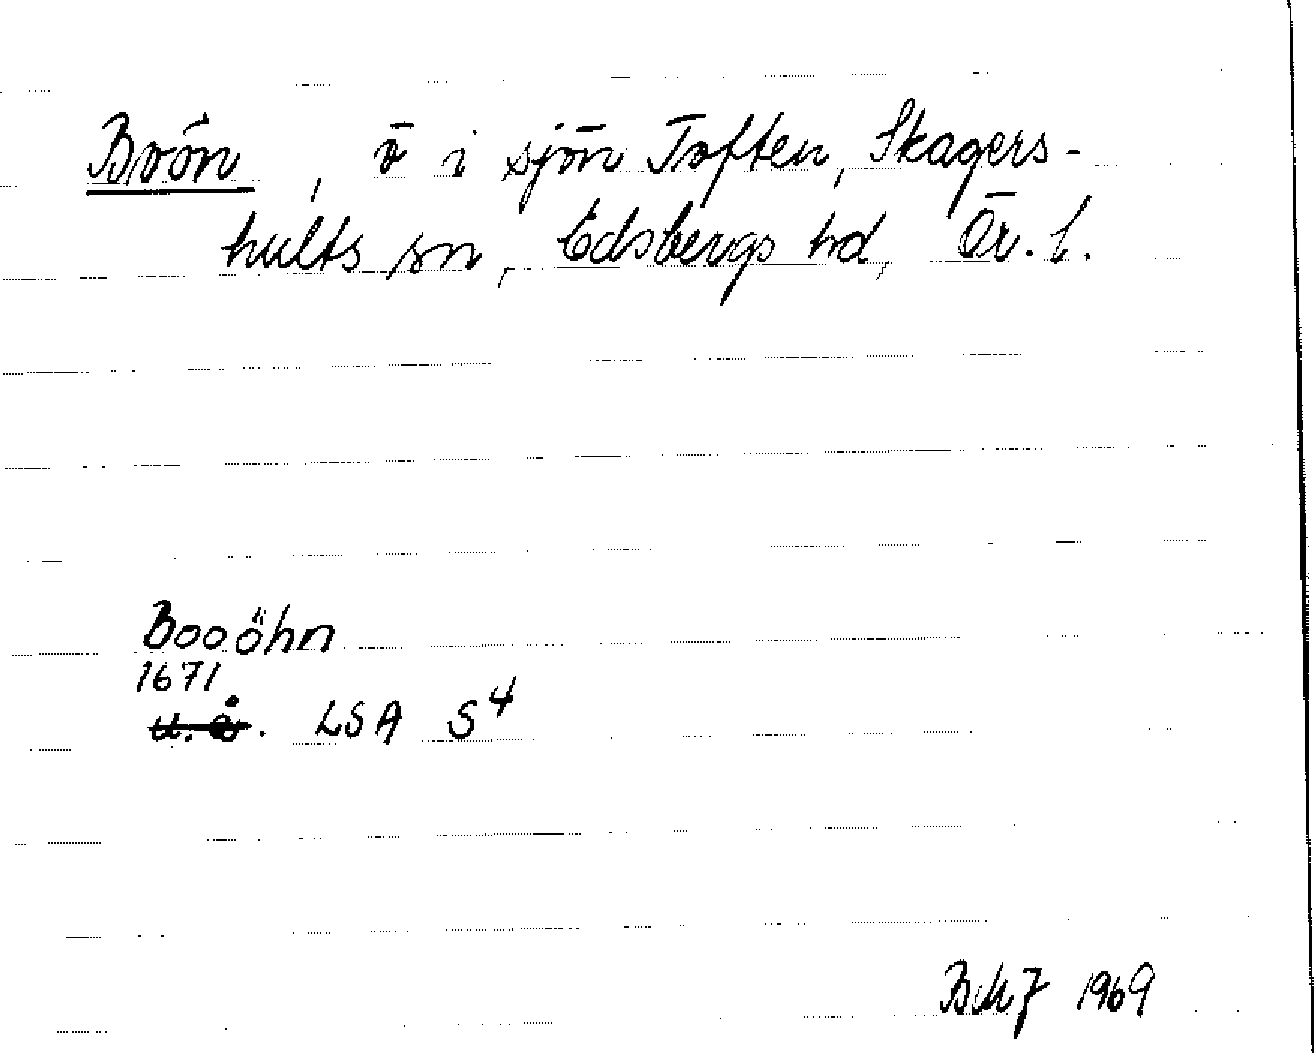 Boön, ö i sjön Toften, Skagers-
hults sn, Edsbergs hd, Ör. l.
Booöhn
1671
u. å. LSA S4
BMJ 1969